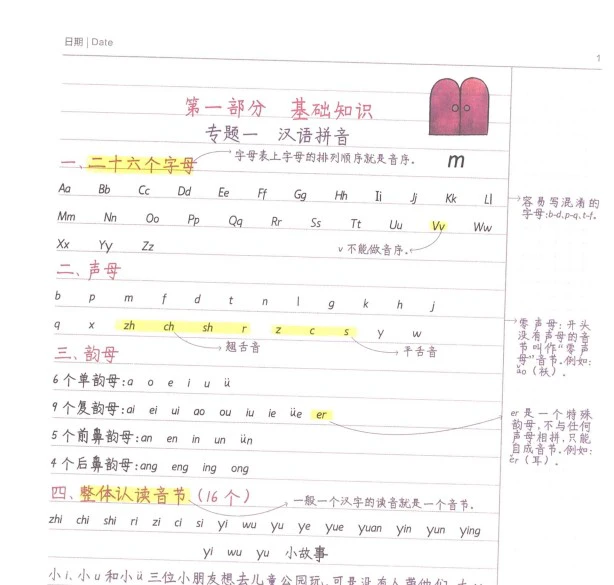 日期 | Date
第一部分 基础知识
专题一 汉语拼音
m
一、二十六个字母
字母表上字母的排列顺序就是音序.
Aa Bb Cc Dd Ee Ff Gg Hh Ii Jj Kk Ll
容易写混淆的
字母:b-d,p-q,t-f.
Mm Nn Oo Pp Qq Rr Ss Tt Uu Vv Ww
Xx Yy Zz
v 不能做音序.
二、声母
b p m f d t n l g k h j
q x zh ch sh r z c s y w
翘舌音
平舌音
零声母: 开头
没有声母的音
节叫作“零声
母”音节.例如:
ǎo (袄).
三、韵母
6 个单韵母:a o e i u ü
9 个复韵母:ai ei ui ao ou iu ie üe er
er 是一个特殊
韵母,不与任何
声母相拼,只能
自成音节.例如:
ěr (耳).
5 个前鼻韵母:an en in un ün
4 个后鼻韵母:ang eng ing ong
四、整体认读音节.(16 个)
一般一个汉字的读音就是一个音节.
zhi chi shi ri zi ci si yi wu yu ye yue yuan yin yun ying
yi wu yu 小故事
小 i、小 u 和小 ü 三位小朋友想去儿童公园玩,可是没有人带他们,